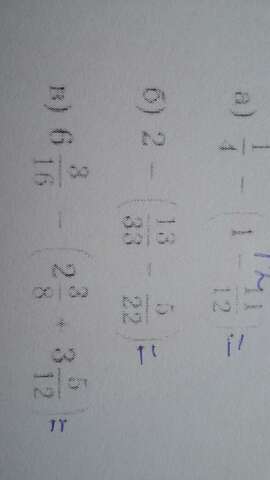 а) 1/4 − (1 − 11/12)
б) 2 − (13/33 − 5/22)
в) 6 3/16 − (2 3/8 + 3 5/12)